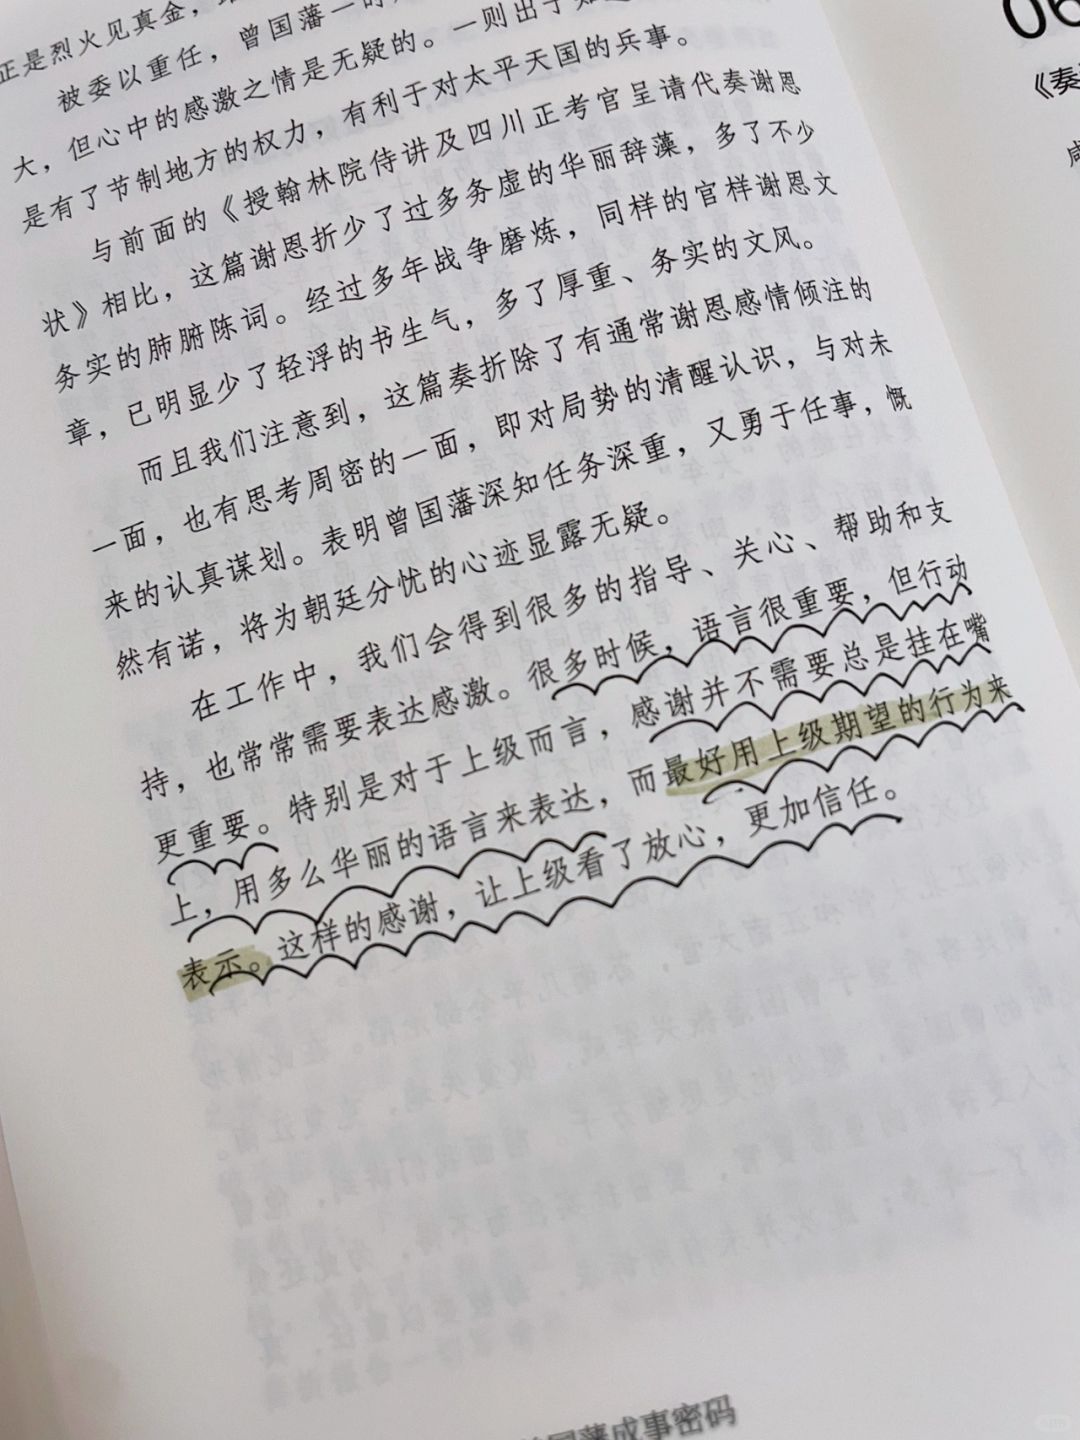 正是烈火见真金，
被委以重任，曾国藩一时
大，但心中的感激之情是无疑的。一则出于知遇
是有了节制地方的权力，有利于对太平天国的兵事。
与前面的《授翰林院侍讲及四川正考官呈请代奏谢恩
状》相比，这篇谢恩折少了过多务虚的华丽辞藻，多了不少
务实的肺腑陈词。经过多年战争磨炼，同样的官样谢恩文
章，已明显少了轻浮的书生气，多了厚重、务实的文风。
而且我们注意到，这篇奏折除了有通常谢恩感情倾注的
一面，也有思考周密的一面，即对局势的清醒认识，与对未
来的认真谋划。表明曾国藩深知任务深重，又勇于任事，慨
然有诺，将为朝廷分忧的心迹显露无疑。
在工作中，我们会得到很多的指导、关心、帮助和支
持，也常常需要表达感激。很多时候，语言很重要，但行动
更重要。特别是对于上级而言，感谢并不需要总是挂在嘴
上，用多么华丽的语言来表达，而最好用上级期望的行为来
表示。这样的感谢，让上级看了放心，更加信任。
国藩成事密码
06
《奏